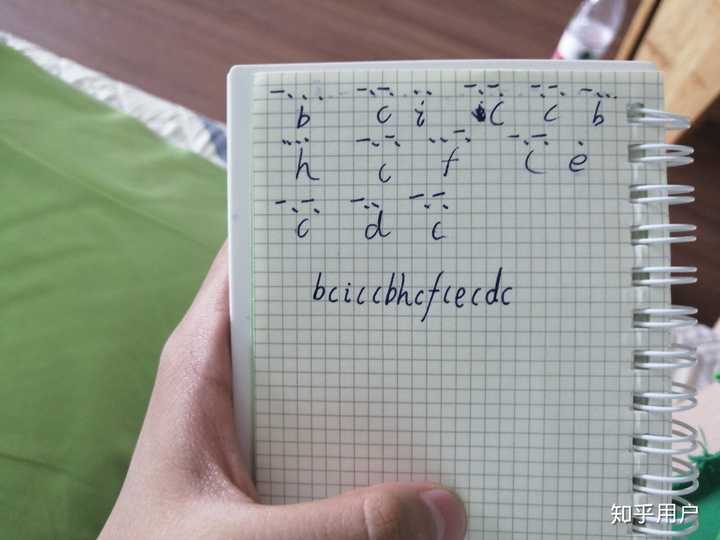 -... -.-. .. -.-. -.-. -...
b c i c c b
.... -.-. ..-. -.-. .
h c f c e
-.-. -.. -.-.
c d c
bciccbhcfcecdc
知乎用户